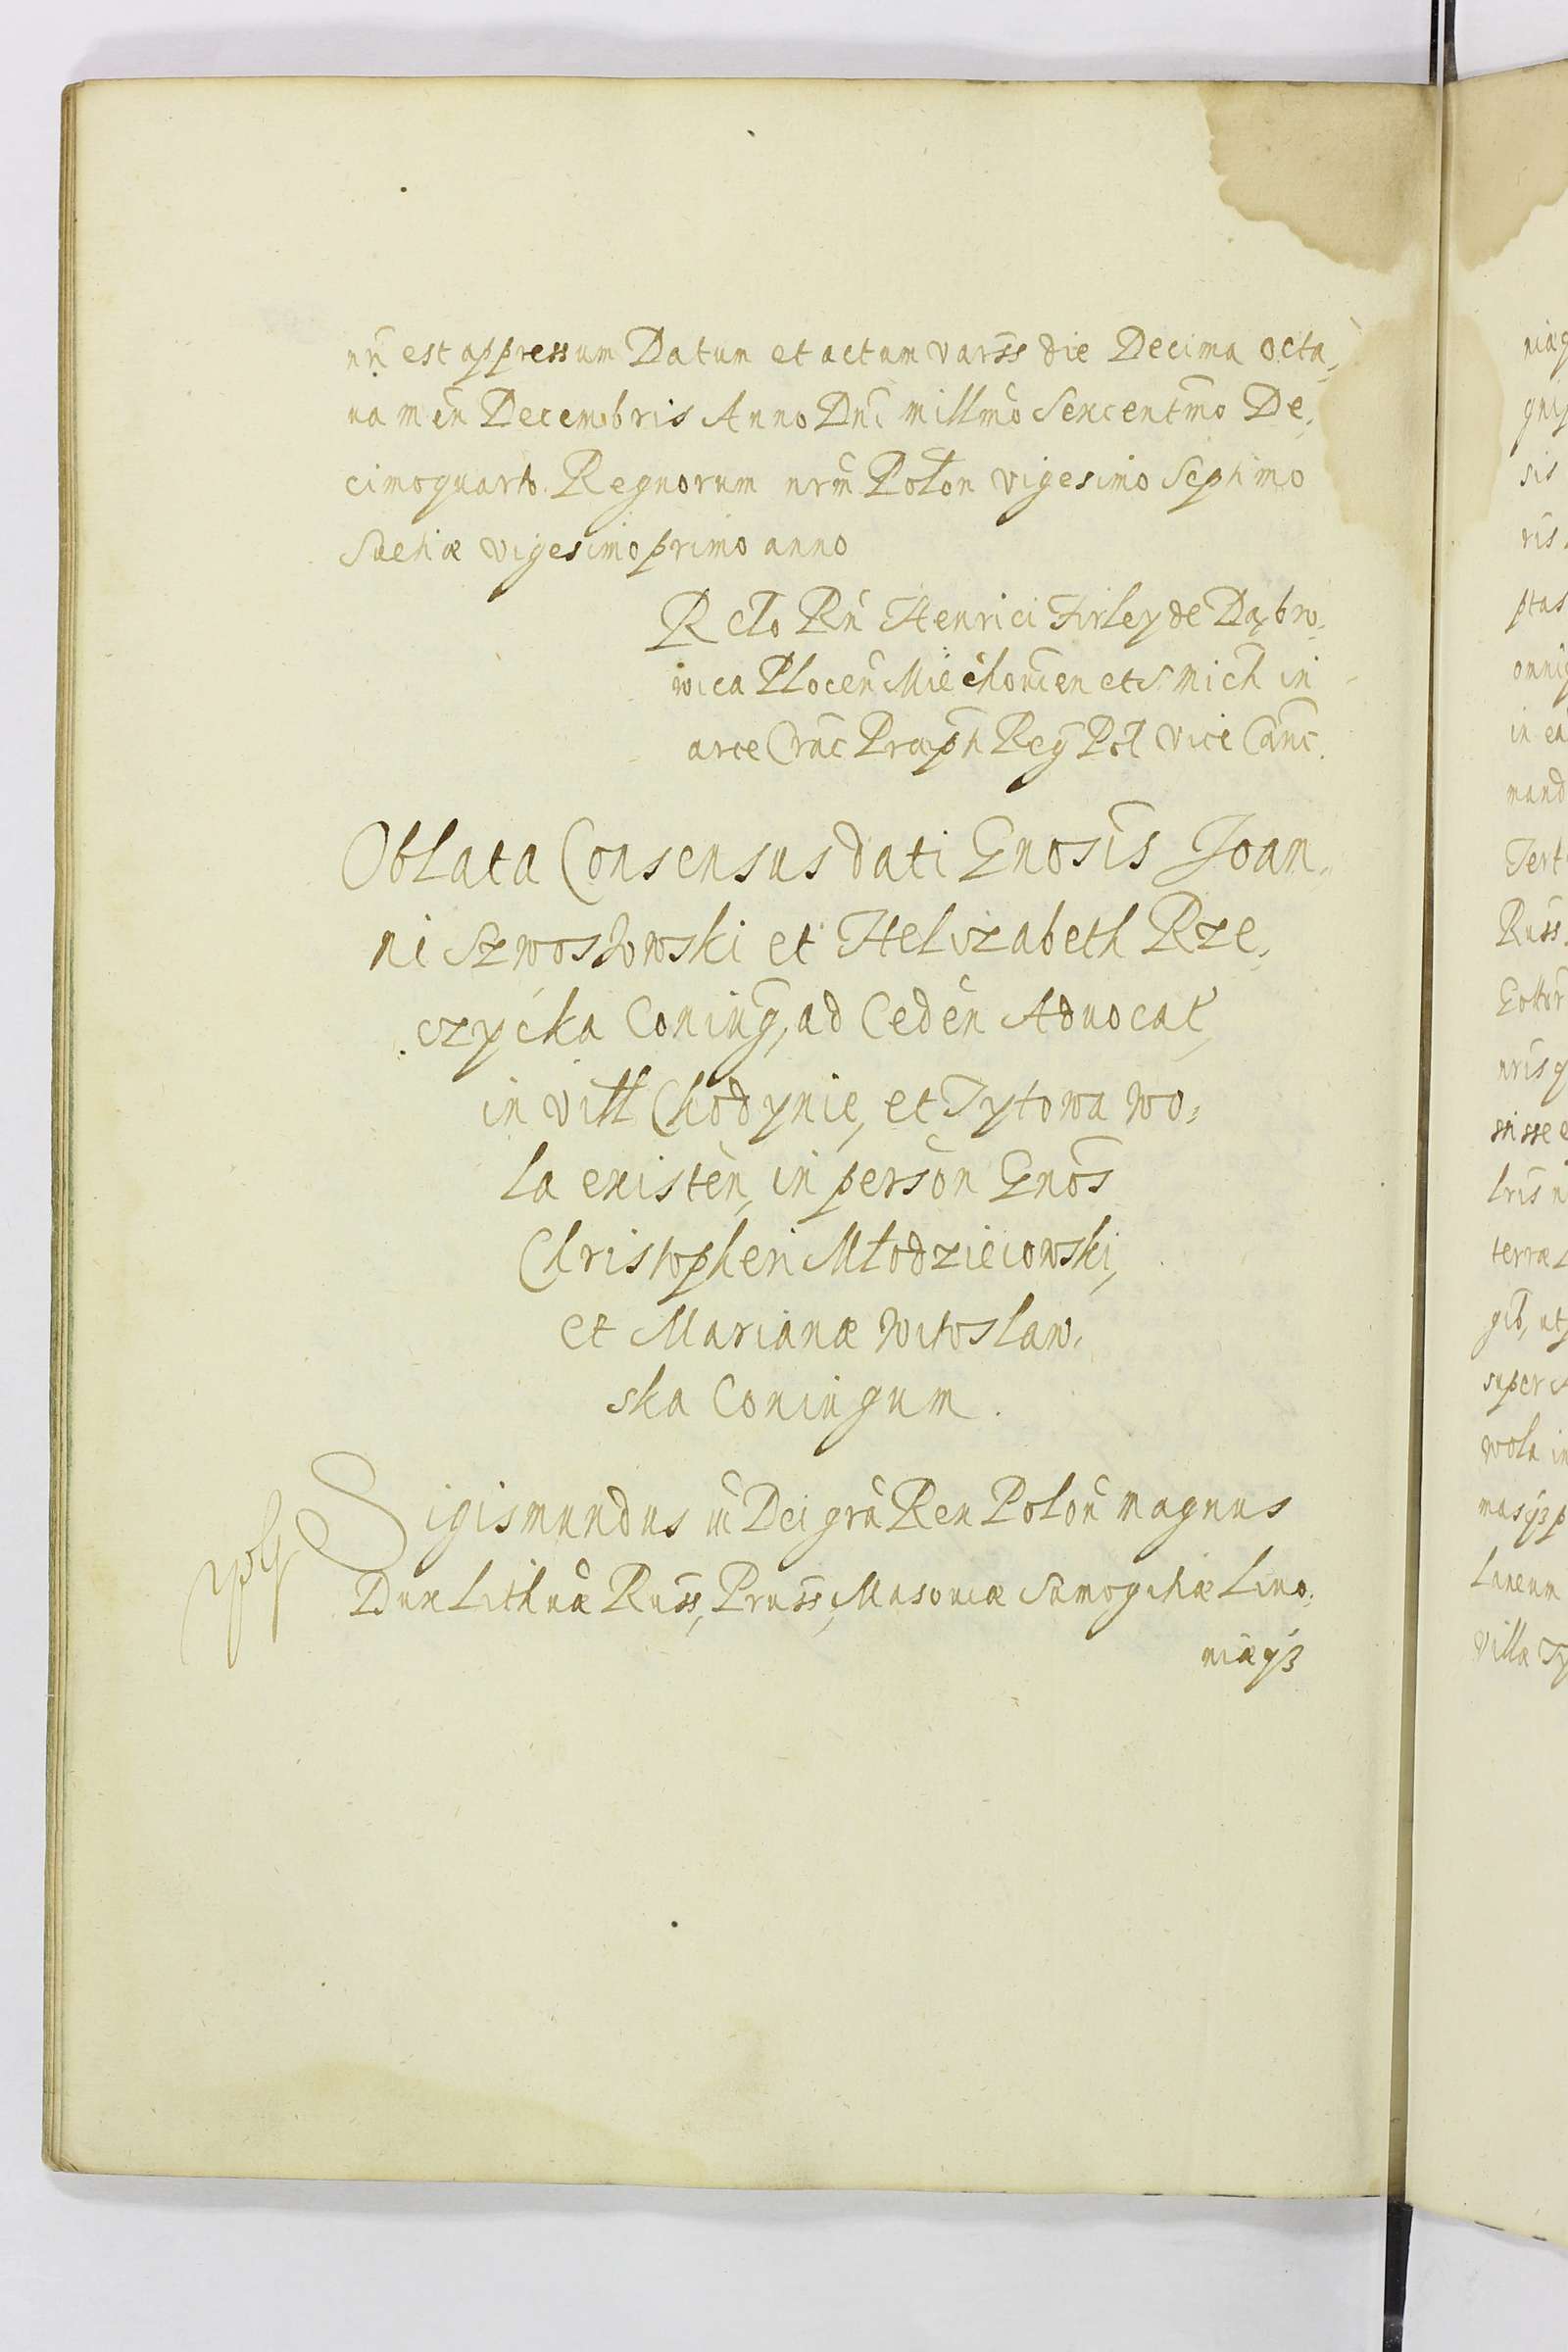 nrı est appressum Datum et actum Varss die Decima octa,
ua men Decembris Anno Dni millmo Sexcentmo De,
cimoquarto. Regnorum nrm Polon vigesimo Septimo
Suetiæ vigesimoprimo anno
R clo Rñ Henrici Firley de Dąbro,
wica Plocen Miechowien et S. Mich in
arce Crac Præph Reg Pol Vice Canc.
Oblata Consensus dati Gnosis Joan,
ni Szwoszowski et Helizabeth Rze,
czycka Coniug, ad Ceden Aduocat,
in Vill Chodynie, et Tytowa wo,
la existen, in person Gnos
Christopheri Młodzieiowski,
et Marianæ Witoslaw,
ska Coniugum.
Sigismundus iii Dei gra Rex Polon magnus
Dux Lithuæ Russ, Pruss, Masouiæ Samogitiæ Liuo,
niæqȝ